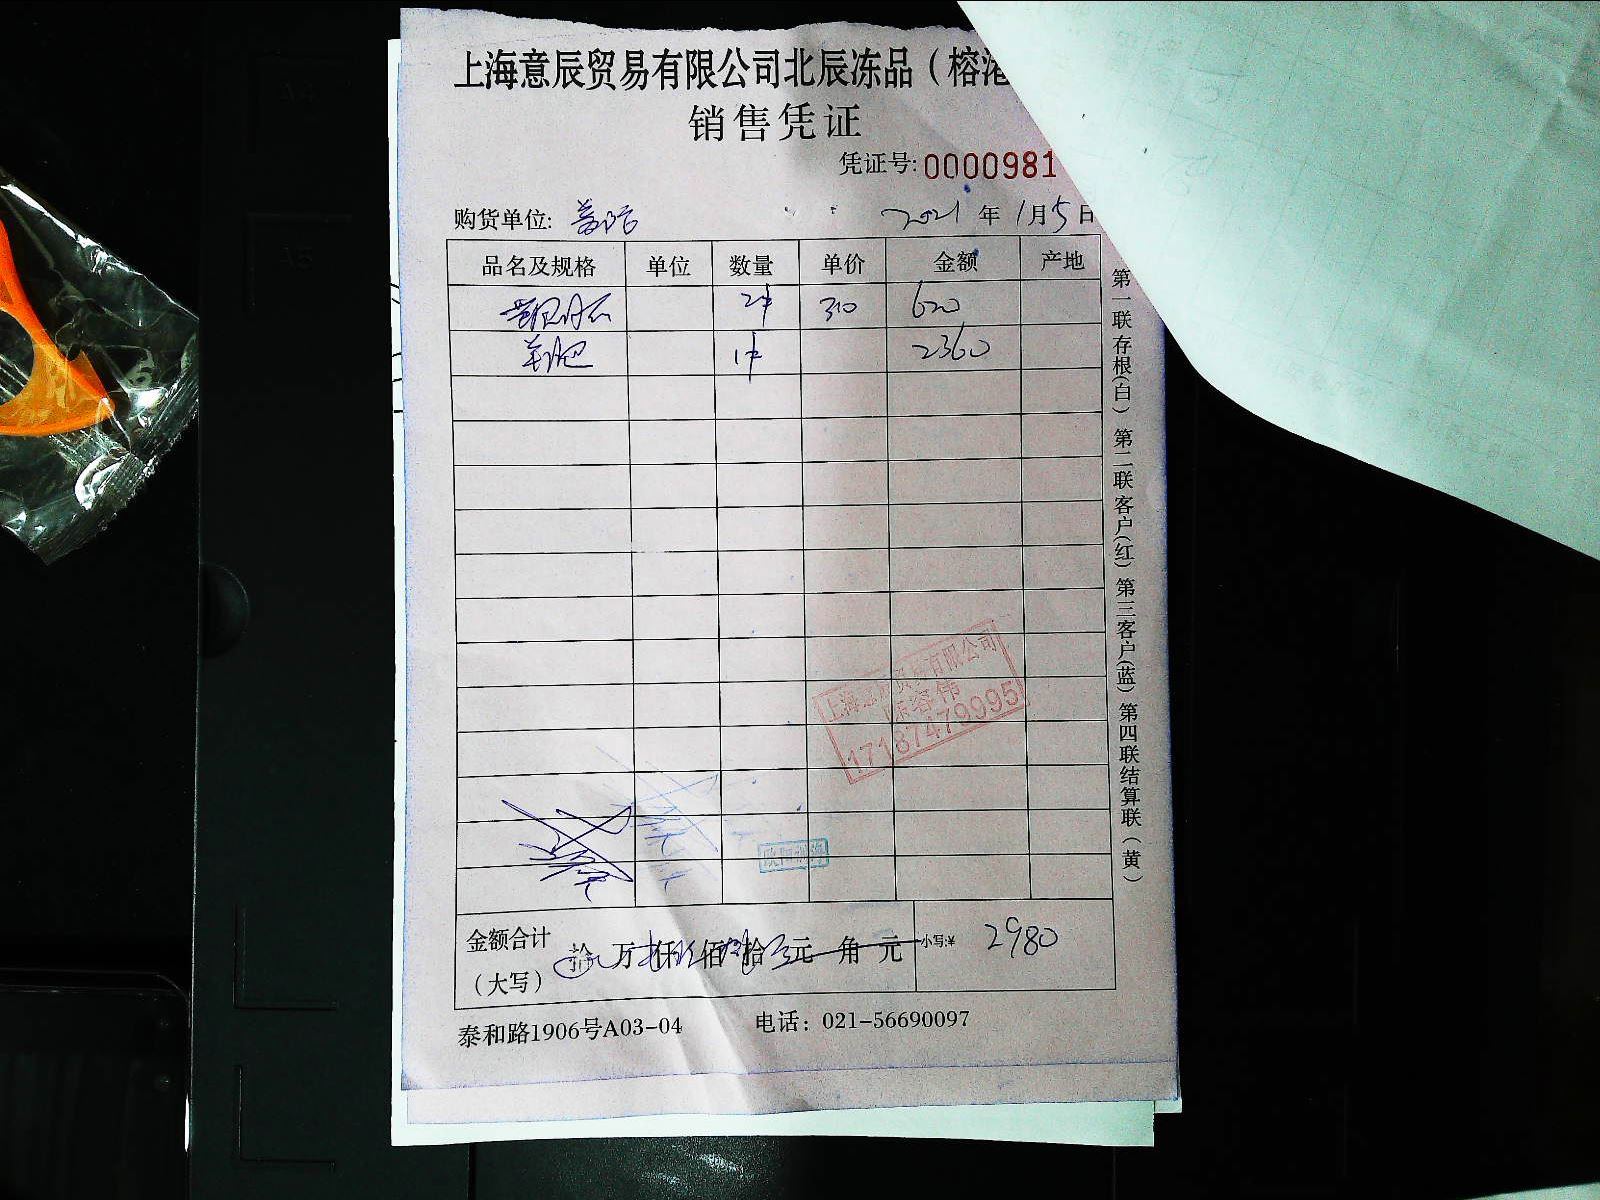 上海意辰贸易有限公司北辰冻品（榕港
销售凭证
凭证号:0000981
购货单位:
2021 年 1月5日
品名及规格 单位 数量 单价 金额 产地
2件 310 620
羊肥 1件 2360
第一联存根(白) 第二联客户(红) 第三客户(蓝) 第四联结算联(黄)
上海意辰贸易有限公司
17187479995
金额合计
（大写）
拾 万 仟 佰 拾 元 角 元 小写:¥ 2980
泰和路1906号A03-04 电话：021-56690097